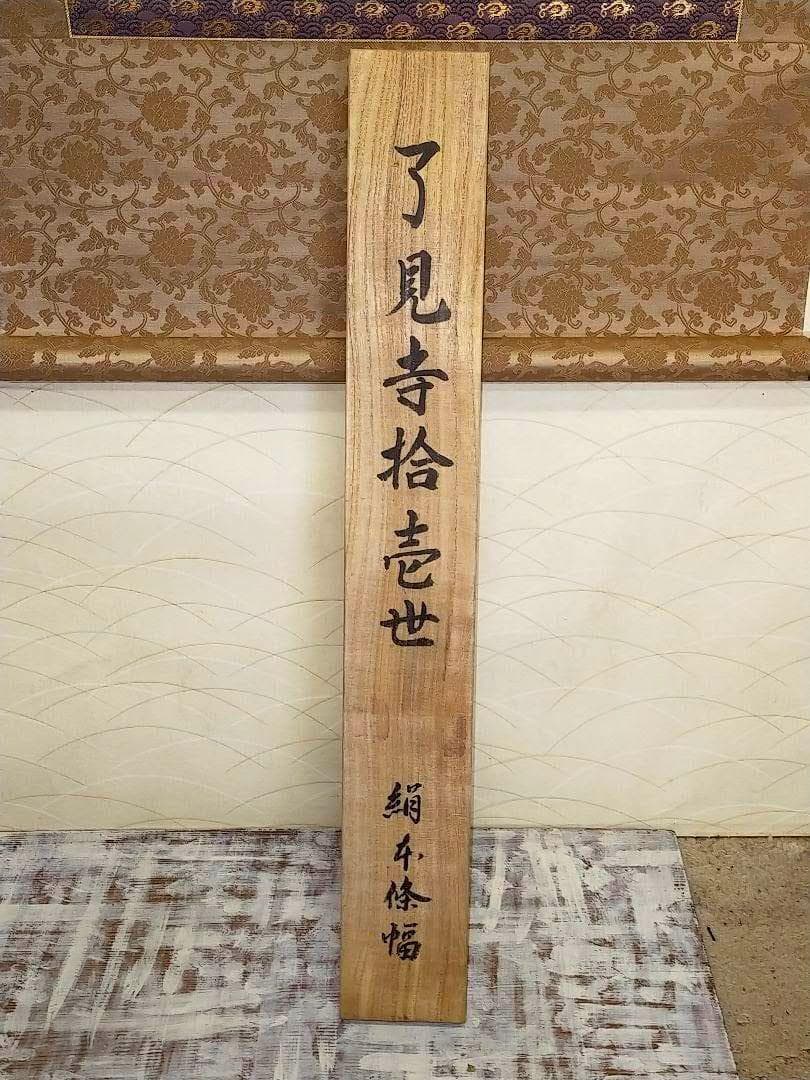 了見寺拾壱世
絹本條幅